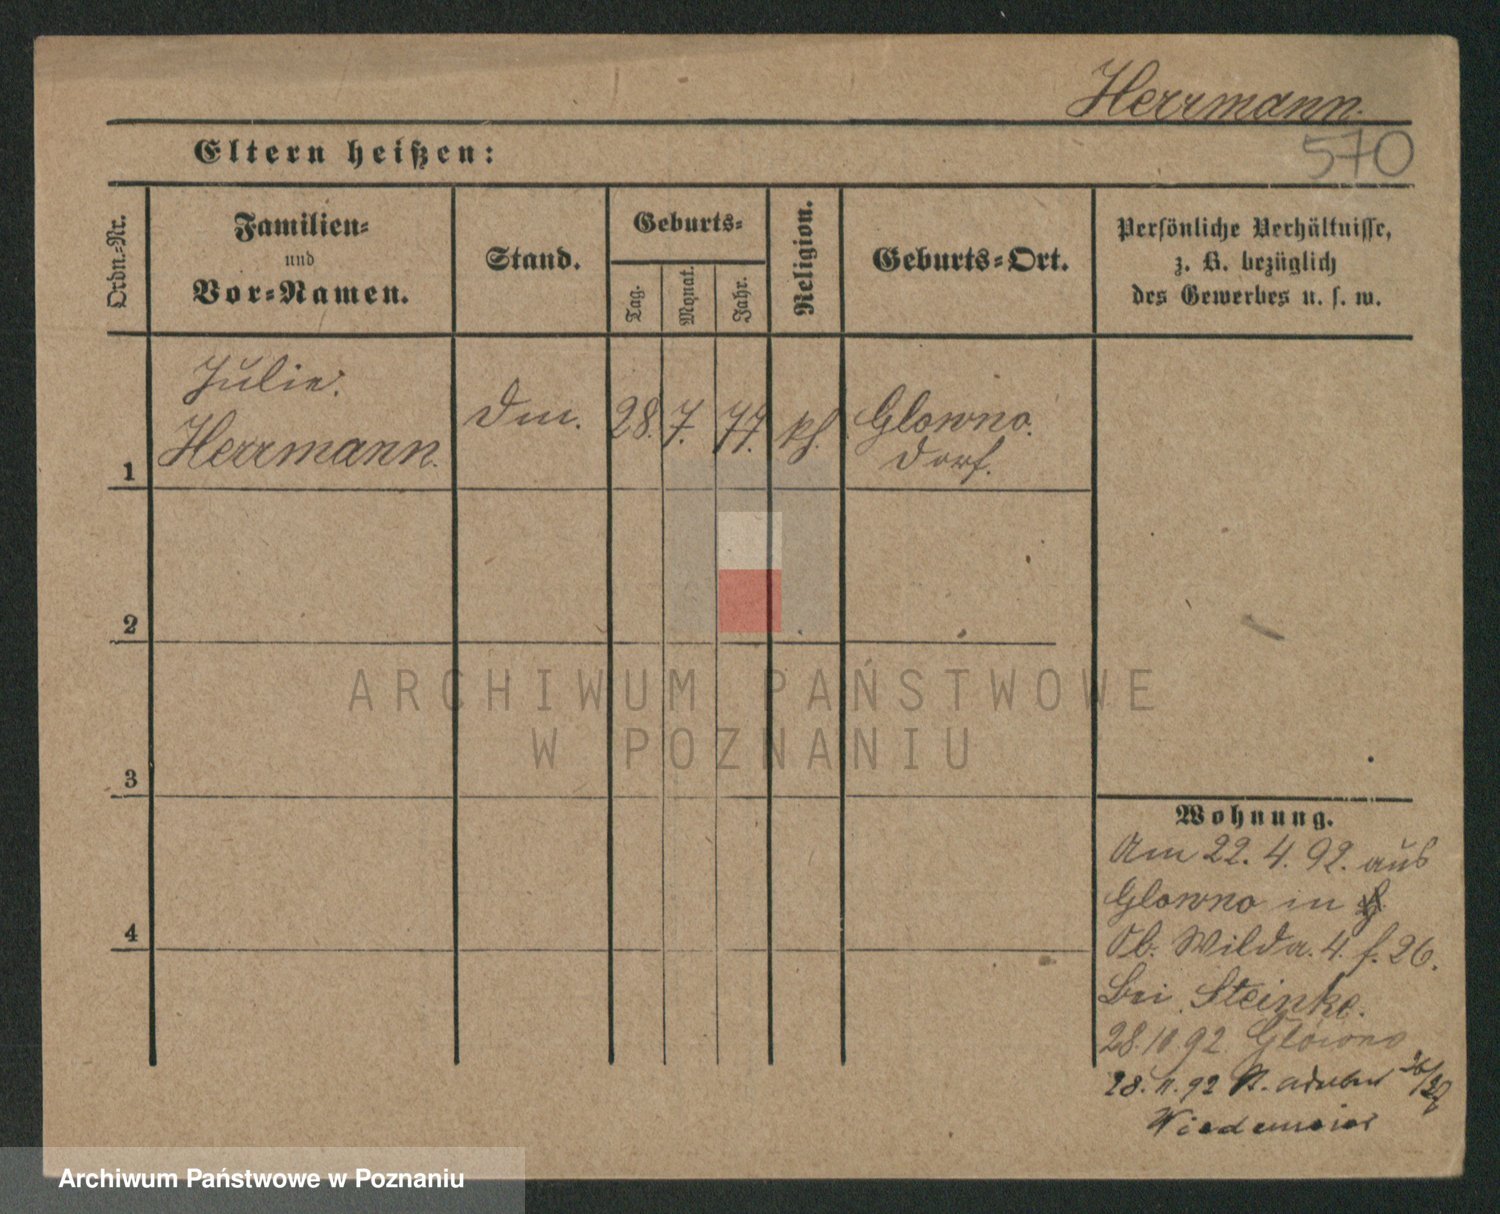 Herrmann.
570
Eltern heißen:
Ordn.-Nr.
Familien-
und
Vor-Namen.
Stand.
Geburts-
Tag.
Monat.
Jahr.
Religion.
Geburts-Ort.
Persönliche Verhältnisse,
z. B. bezüglich
des Gewerbes u. s. w.
1
Julie.
Herrmann.
Dm.
28.
7.
77.
kh.
Glowno.
Dorf.
2
3
4
Wohnung.
Am 22. 4. 92. aus
Glowno in
Ob. Wilda. 4. f. 26.
bei Steinke.
28.10.92 Glowno
28. 11. 92 St. Adalbert 26/27
Wiedemeier
ARCHIWUM PAŃSTWOWE
W POZNANIU
Archiwum Państwowe w Poznaniu